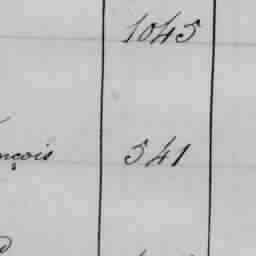 1045
nçois 541